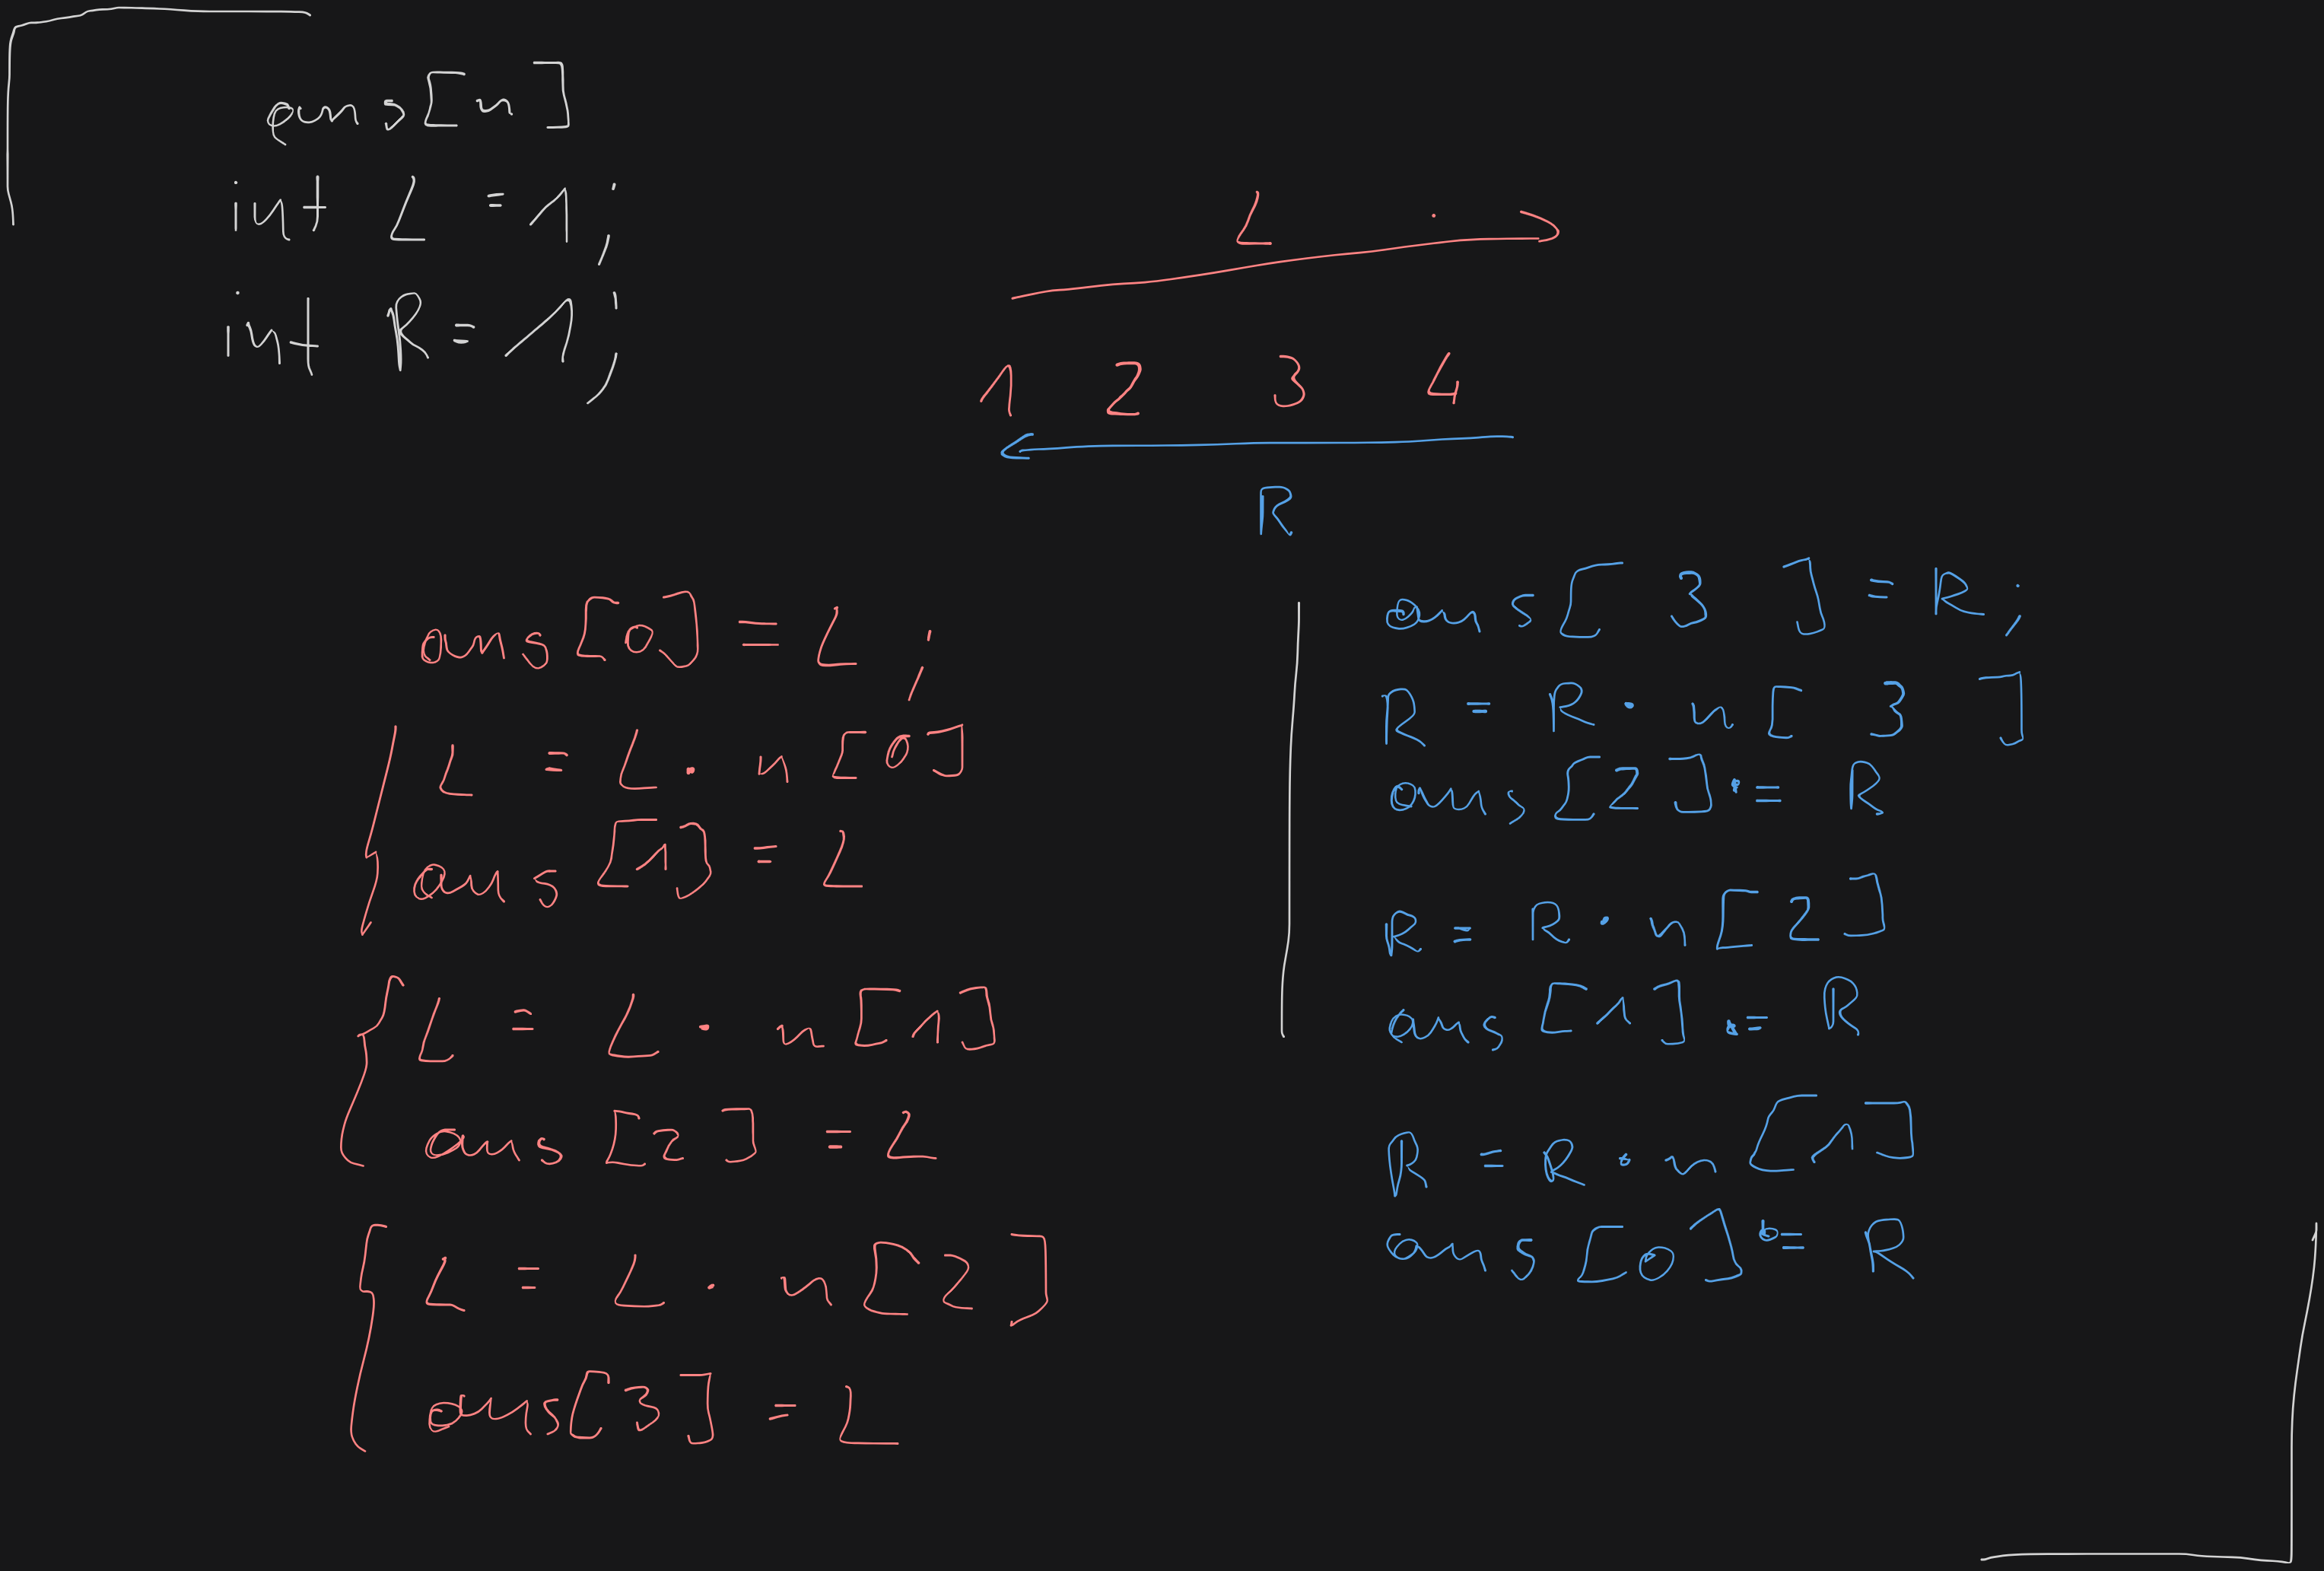 ans[n]
int L = 1;
int R = 1;
L
1 2 3 4
R
ans[0] = L;
L = L · n[0]
ans[1] = L
L = L · n[1]
ans[2] = L
L = L · n[2]
ans[3] = L
ans[3] = R;
R = R · n[3]
ans[2] *= R
R = R · n[2]
ans[1] *= R
R = R · n[1]
ans[0] *= R